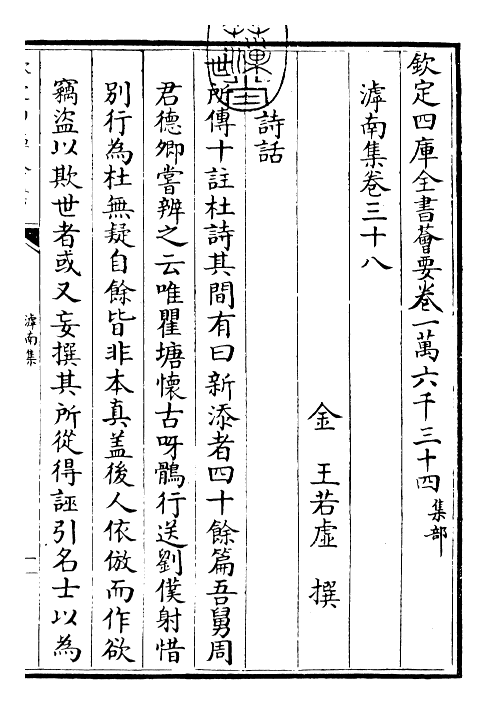 欽定四庫全書薈要卷一萬六千三十四 集部
滹南集卷三十八
金 王若虛 撰
詩話
世所傳十註杜詩其間有曰新添者四十餘篇吾舅周
君德卿嘗辨之云唯瞿塘懷古呀鶻行送劉僕射惜
別行為杜無疑自餘皆非本真蓋後人依倣而作欲
竊盜以欺世者或又妄撰其所從得誣引名士以為
滹南集
一